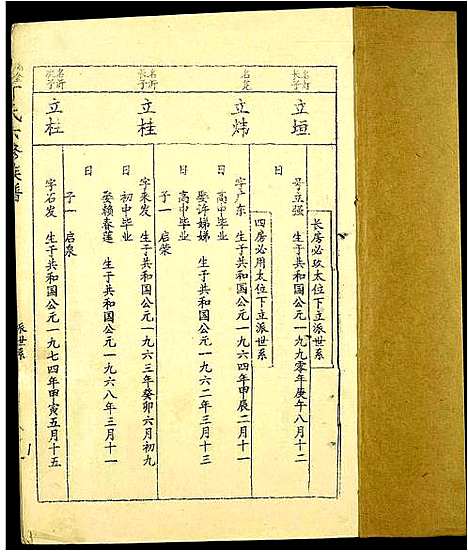 长房必玖太位下立派世系
名灯
长子
立垣
号立强 生于共和国公元一九九零年庚午八月十二
日
四房必用太位下立派世系
立炜
字广东 生于共和国公元一九六四年甲辰二月十一
日
高中毕业
娶许娣娣 生于共和国公元一九六二年三月十三
高中毕业
子一 启荣
名所
长子
立桂
字来发 生于共和国公元一九六三年癸卯六月初九
日
初中毕业
娶赖春莲 生于共和国公元一九六八年三月十一
日
子一 启泉
名所
次子
立柱
字石发 生于共和国公元一九七四年甲寅五月十五
丁氏六修族谱
派世系